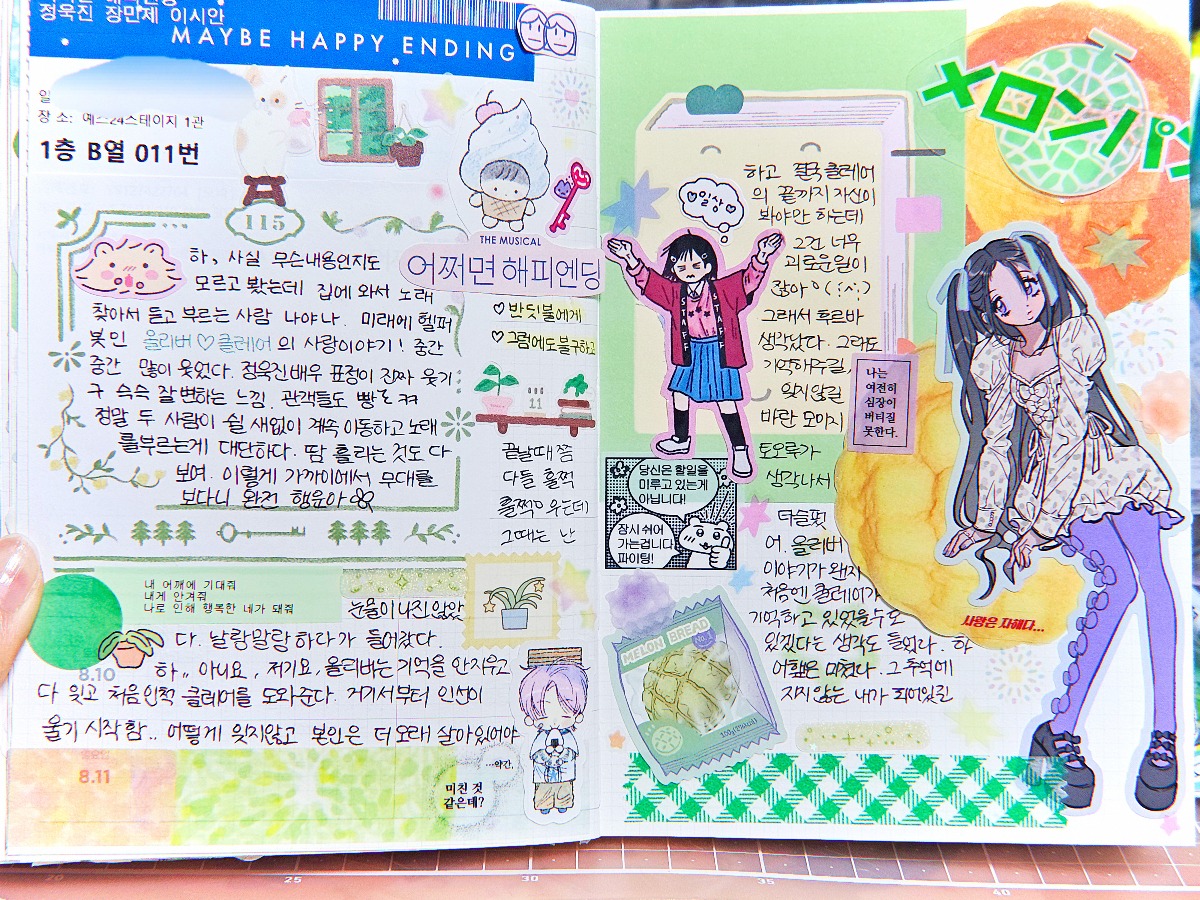 정욱진 장민제 이시안
MAYBE HAPPY ENDING
일
장 소: 예스24스테이지 1관
1층 B열 011번
115
THE MUSICAL
어쩌면 해피엔딩
하, 사실 무슨내용인지도
모르고 봤는데 집에 와서 노래
찾아서 듣고 부르는 사람 나야나. 미래에 헬퍼
봇인 올리버♡클레어의 사랑이야기! 중간
중간 많이 웃었다. 정욱진배우 표정이 진짜 웃기
구 슥슥 잘변하는 느낌. 관객들도 빵
정말 두 사람이 쉴 새없이 계속 이동하고 노래
를부르는게 대단하다. 땀 흘리는 것도 다
보여. 이렇게 가까이에서 무대를
보다니 완전 행운아
♡반딧불에게
♡그럼에도불구하고
11
끝날때 쯤
다들 훌쩍
훌쩍 우는데
그때는 난
내 어깨에 기대줘
내게 안겨줘
나로 인해 행복한 네가 돼줘
눈물이 나진 않았
다. 날랑말랑하다가 들어갔다.
8.10
하,, 아니요, 저기요, 올리버는 기억을 안지우고
다 잊고 처음인척 클레어를 도와준다. 거기서부터 인선이
울기 시작함.. 어떻게 잊지않고 본인은 더 오래 살아있어야
8.11
...약간,
미친 것
같은데?
メロンパン
♡일상♡
STAFF
STAFF
하고 결국 클레어
의 끝까지 자신이
봐야만 하는데
그건 너무
괴로운일이
잖아
그래서 푸르바
생각났다. 그라도
기억해주길,
잊지않길
바란 모아지
토오루가
생각나서
나는
여전히
심장이
버티질
못한다.
당신은 할일을
미루고 있는게
아닙니다!
잠시 쉬어
가는겁니다
파이팅!
더슬펐
어. 올리버
이야기가 왠지
처음엔 클레어가
기억하고 있었을수도
있겠다는 생각도 들었다. 하
어햎은 미쳤다. 그 추억에
지지 않는 내가 되어있길
사랑은 자해다...
MELON BREAD
No.1